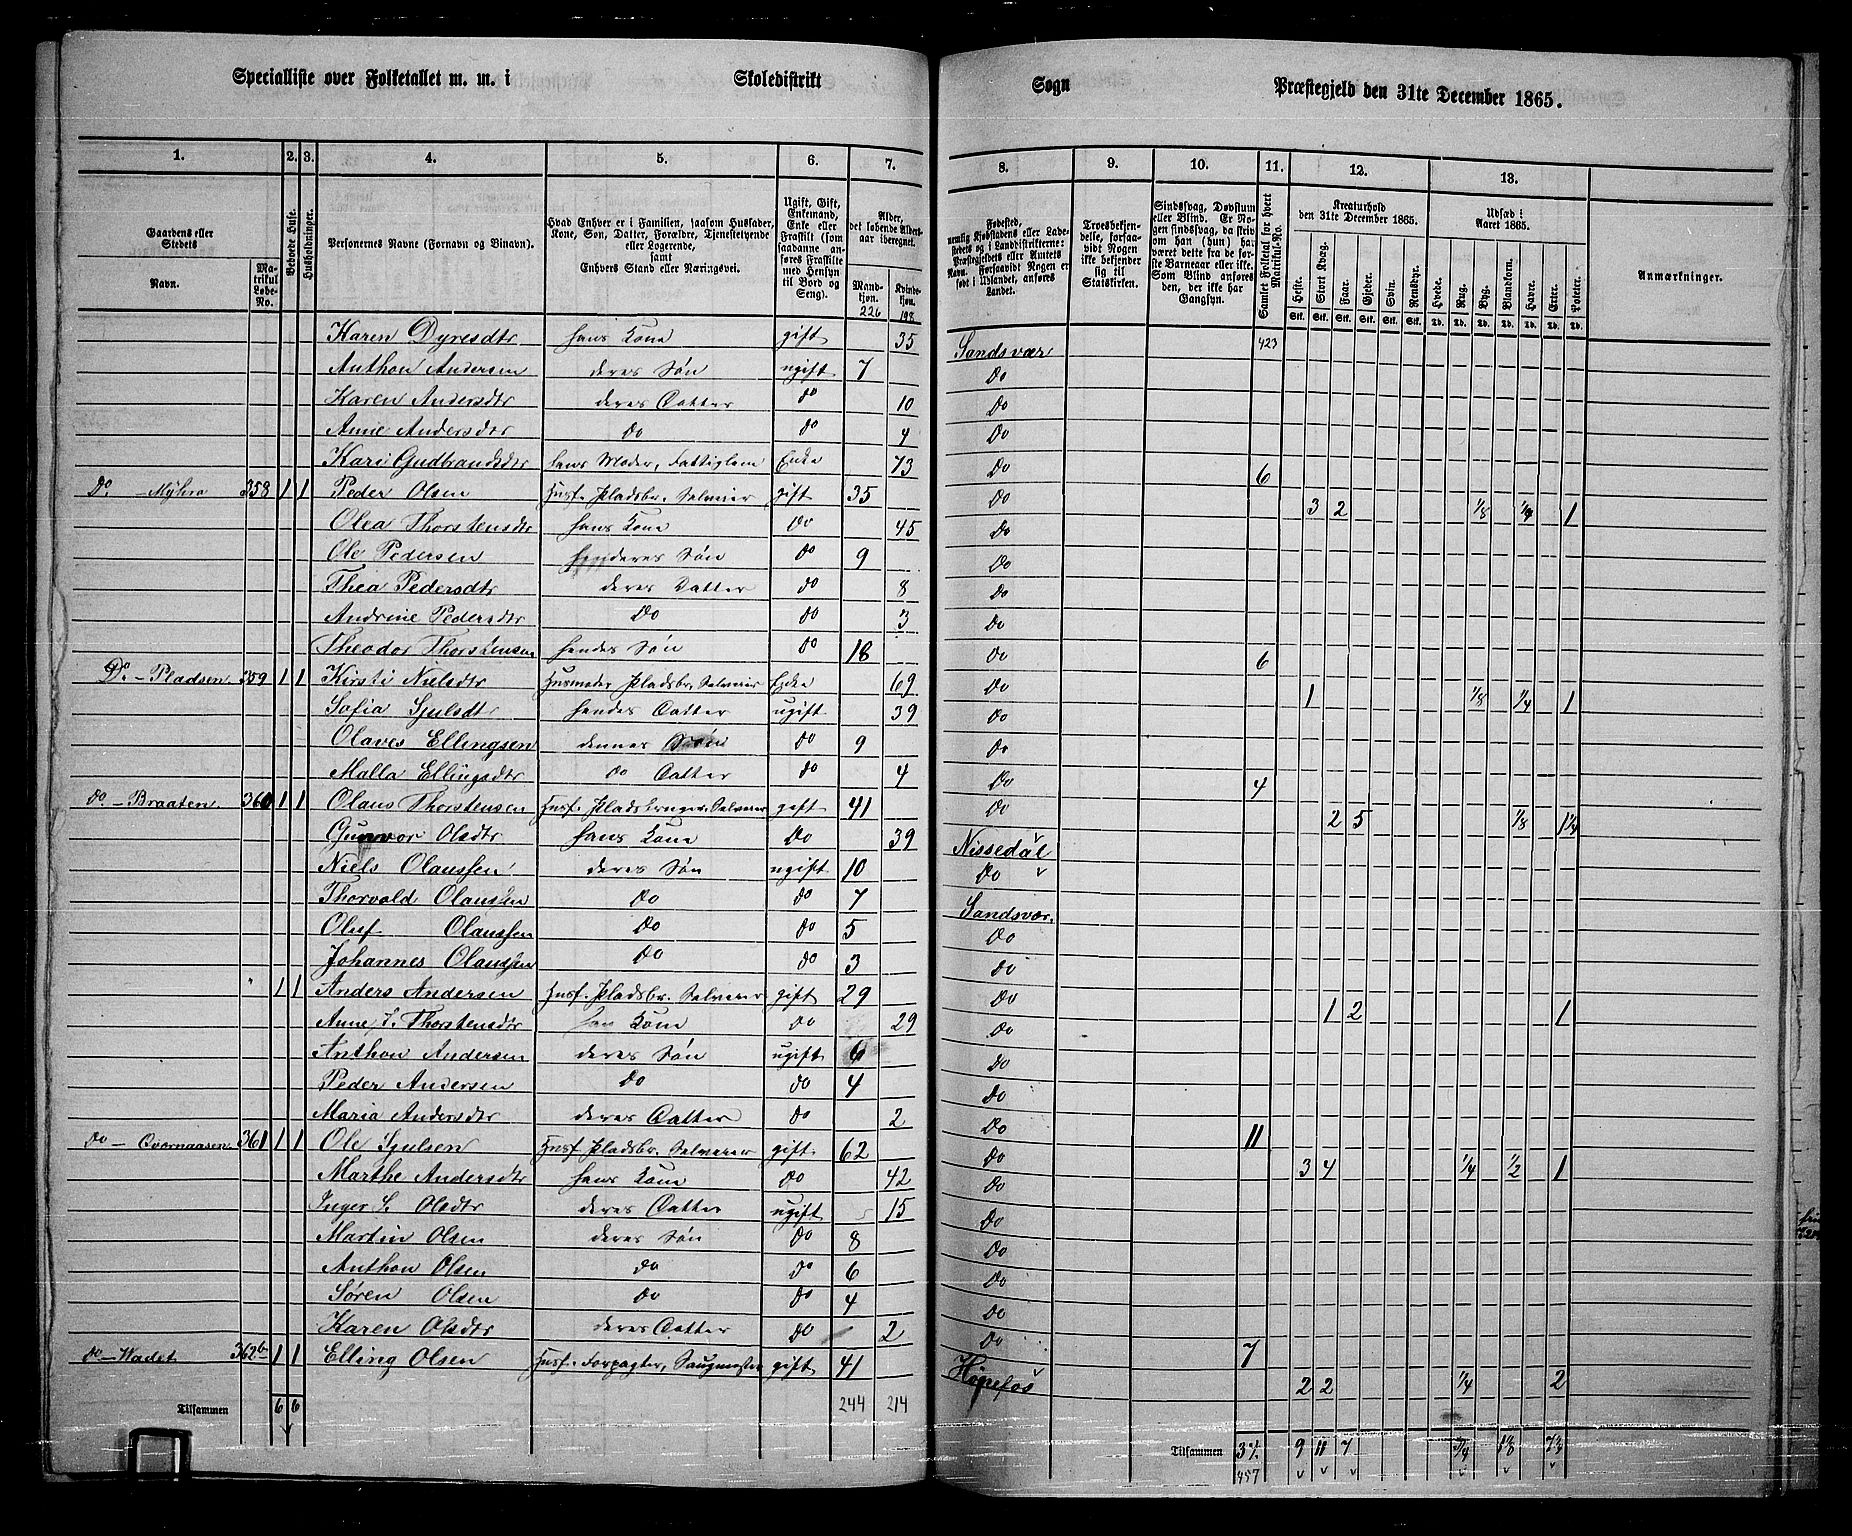 Specialliste over Folketallet m. m. i Skoledistrikt Sogn Præstegjeld den 31te December 1865.
1. 2. 3. 4. 5. 6. 7. 8. 9. 10. 11. 12. 13.
Gaardens eller Stedets
Navn.
Matrikul Løbe-No.
Beboede Huse.
Husholdninger.
Personernes Navne (Fornavn og Binavn).
Hvad Enhver er i Familien, saasom Husfader, Kone, Søn, Datter, Forældre, Tjenestetyende eller Logerende, samt Enhvers Stand eller Næringsvei.
Ugift, Gift, Enkemand, Enke eller Fraskilt (som saadanne anføres Fraskilte med Hensyn til Bord og Seng).
Alder, det løbende Aldersaar iberegnet.
Mandkjøn. Kvindekjøn.
226 198
Fødested, nemlig Kjøbstadens eller Ladestedets og i Landdistrikterne: Præstegjeldets eller Amtets Navn. Forsaavidt Nogen er født i Udlandet, anføres Landet.
Troesbekjendelse, forsaavidt Nogen ikke bekjender sig til Statskirken.
Sindssvag, Døvstum eller Blind. Er Nogen sindssvag, da skrives om han (hun) har været dette fra de første Barneaar eller ikke. Som Blind anføres den, der ikke har Gangsyn.
Samlet Folketal for hvert Matrikul-No.
Kreaturhold den 31te December 1865.
Heste. Stort Kvæg. Faar. Gjeder. Svin. Rensdyr.
Udsæd i Aaret 1865.
Hvede. Rug. Byg. Blandkorn. Havre. Erter. Poteter.
Anmærkninger.
Karen Dyresdtr hans Kone gift 35 Sandsvær 423
Anthon Andersen deres Søn ugift 7 Do
Karen Andersdtr deres Datter do 10 Do
Anne Andersdtr Do do 4 Do
Kari Gudbrandsdtr hans Moder, Fattiglem Enke 73 Do 6
Do - Myhra 358 1 1 Peder Olsen Husf. Pladsbr. Selveier gift 35 Do 3 2 1/8 1/4 1
Olea Thorstensdtr hans Kone Do 45 Do
Ole Pedersen deres Søn do 9 Do
Thea Pedersdtr deres Datter do 8 Do
Andrine Pedersdtr Do do 3 Do
Theodor Thorstensen hendes Søn do 18 Do 6
Do - Pladsen 359 1 1 Kirsti Nielsdtr Husmoder Pladsbr. Selveier Enke 69 Do 1 1/8 1/4 1
Sofia Sjulsdtr hendes Datter ugift 39 Do
Olaves Ellingsen dennes Søn do 9 Do
Malla Ellingsdtr do Datter do 4 Do 4
do - Braaten 360 1 1 Olaus Thorstensen Husf. Pladsbruger. Selveier gift 41 Do 2 5 1/8 1 1/4
Gunvor Olsdtr hans Kone Do 39 Nissedal
Niels Olaussen deres Søn ugift 10 Do
Thorvald Olaussen Do do 7 Sandsvær
Oluf Olaussen Do do 5 Do
Johannes Olaussen Do do 3 Do
" 1 1 Anders Andersen Husf. Pladsbr. Selveier gift 29 Do 1 2 1
Anne J. Thorstensdtr hans Kone Do 29 Do
Anthon Andersen deres Søn ugift 6 Do
Peder Andersen Do do 4 Do
Maria Andersdtr deres Datter Do 2 Do 11
do - Qvernaasen 361 1 1 Ole Sjulsen Husf. Pladsbr. Selveier gift 62 Do 3 4 1/4 1/2 1
Marthe Andersdtr hans Kone Do 42 Do
Inger S. Olsdtr deres Datter ugift 15 Do
Martin Olsen deres Søn Do 8 Do
Anthon Olsen do do 6 Do
Søren Olsen Do do 4 Do
Karen Olsdtr deres Datter Do 2 Do 7
do - Wadet 362b 1 1 Elling Olsen Husf. Forpagter, Saugmester gift 41 Hønefos 2 2 1/4 2
Tilsammen 6 6 244 214 Tilsammen 34 9 11 7 3/4
457